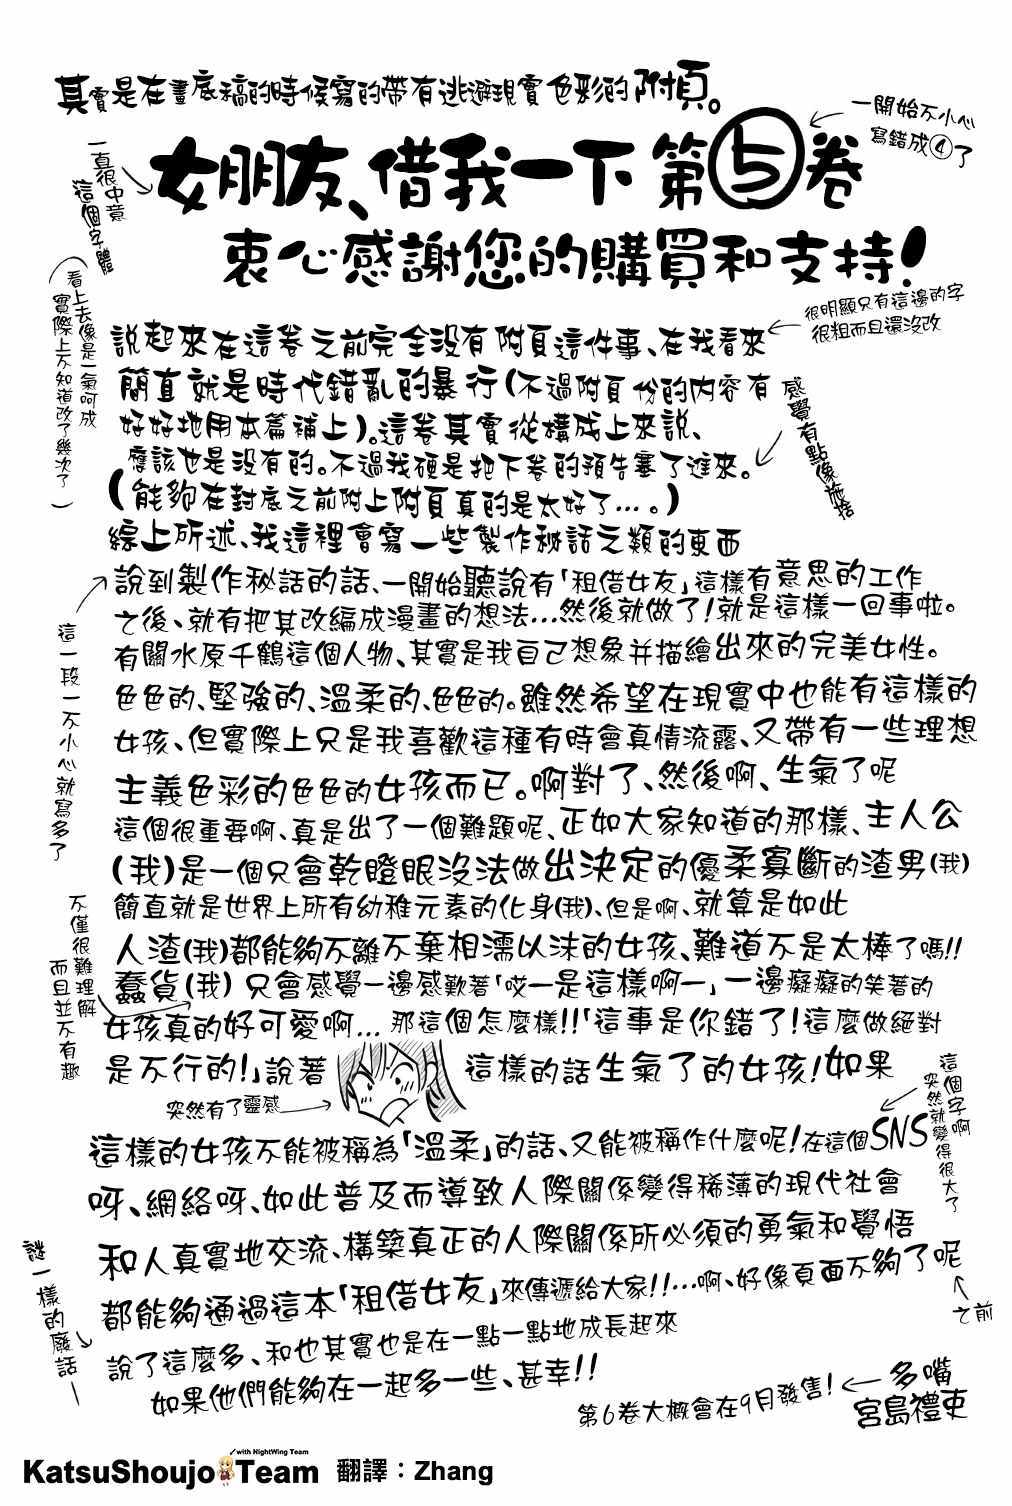 其實是在畫底稿的時候寫的帶有逃避現實色彩的附頁。
一開始不小心
寫錯成④了
一直很中意
這個字體
女朋友、借我一下 第5卷
衷心感謝您的購買和支持!
看上去像是一氣呵成
實際上不知道改了幾次了
很明顯只有這邊的字
很粗而且還沒改
說起來在這卷之前完全沒有附頁這件事、在我看來
簡直就是時代錯亂的暴行(不過附頁份的內容有
好好地用本篇補上)。這卷其實從構成上來說、
應該也是沒有的。不過我硬是把下卷的預告塞了進來。
感覺有點像施捨
(能夠在封底之前附上附頁真的是太好了…。)
綜上所述、我這裡會寫一些製作秘話之類的東西
說到製作秘話的話、一開始聽說有「租借女友」這樣有意思的工作
之後、就有把其改編成漫畫的想法…然後就做了!就是這樣一回事啦。
有關水原千鶴這個人物、其實是我自己想象并描繪出來的完美女性。
這一段一不小心就寫多了
色色的、堅強的、溫柔的、色色的。雖然希望在現實中也能有這樣的
女孩、但實際上只是我喜歡這種有時會真情流露、又帶有一些理想
主義色彩的色色的女孩而已。啊對了、然後啊、生氣了呢
這個很重要啊、真是出了一個難題呢、正如大家知道的那樣、主人公
(我)是一個只會乾瞪眼沒法做出決定的優柔寡斷的渣男(我)
簡直就是世界上所有幼稚元素的化身(我)、但是啊、就算是如此
人渣(我)都能夠不離不棄相濡以沫的女孩、難道不是太棒了嗎!!
不僅很難理解
而且並不有趣
蠢貨(我) 只會感覺一邊感歎著「哎一是這樣啊一」一邊癡癡的笑著的
女孩真的好可愛啊… 那這個怎麼樣!!「這事是你錯了!這麼做絕對
是不行的!」說著 這樣的話生氣了的女孩!如果
突然有了靈感
這個字啊
突然就變得很大了
這樣的女孩不能被稱為「溫柔」的話、又能被稱作什麼呢!在這個SNS
呀、網絡呀、如此普及而導致人際關係變得稀薄的現代社會
和人真實地交流、構築真正的人際關係所必須的勇氣和覺悟
都能夠通過這本「租借女友」來傳遞給大家!!…啊、好像頁面不夠了呢
之前
謎一樣的廢話一
說了這麼多、和也其實也是在一點一點地成長起來
如果他們能夠在一起多一些、甚幸!!
第6卷大概會在9月發售!
多嘴
宮島禮吏
with NightWing Team
KatsuShoujo Team 翻譯：Zhang